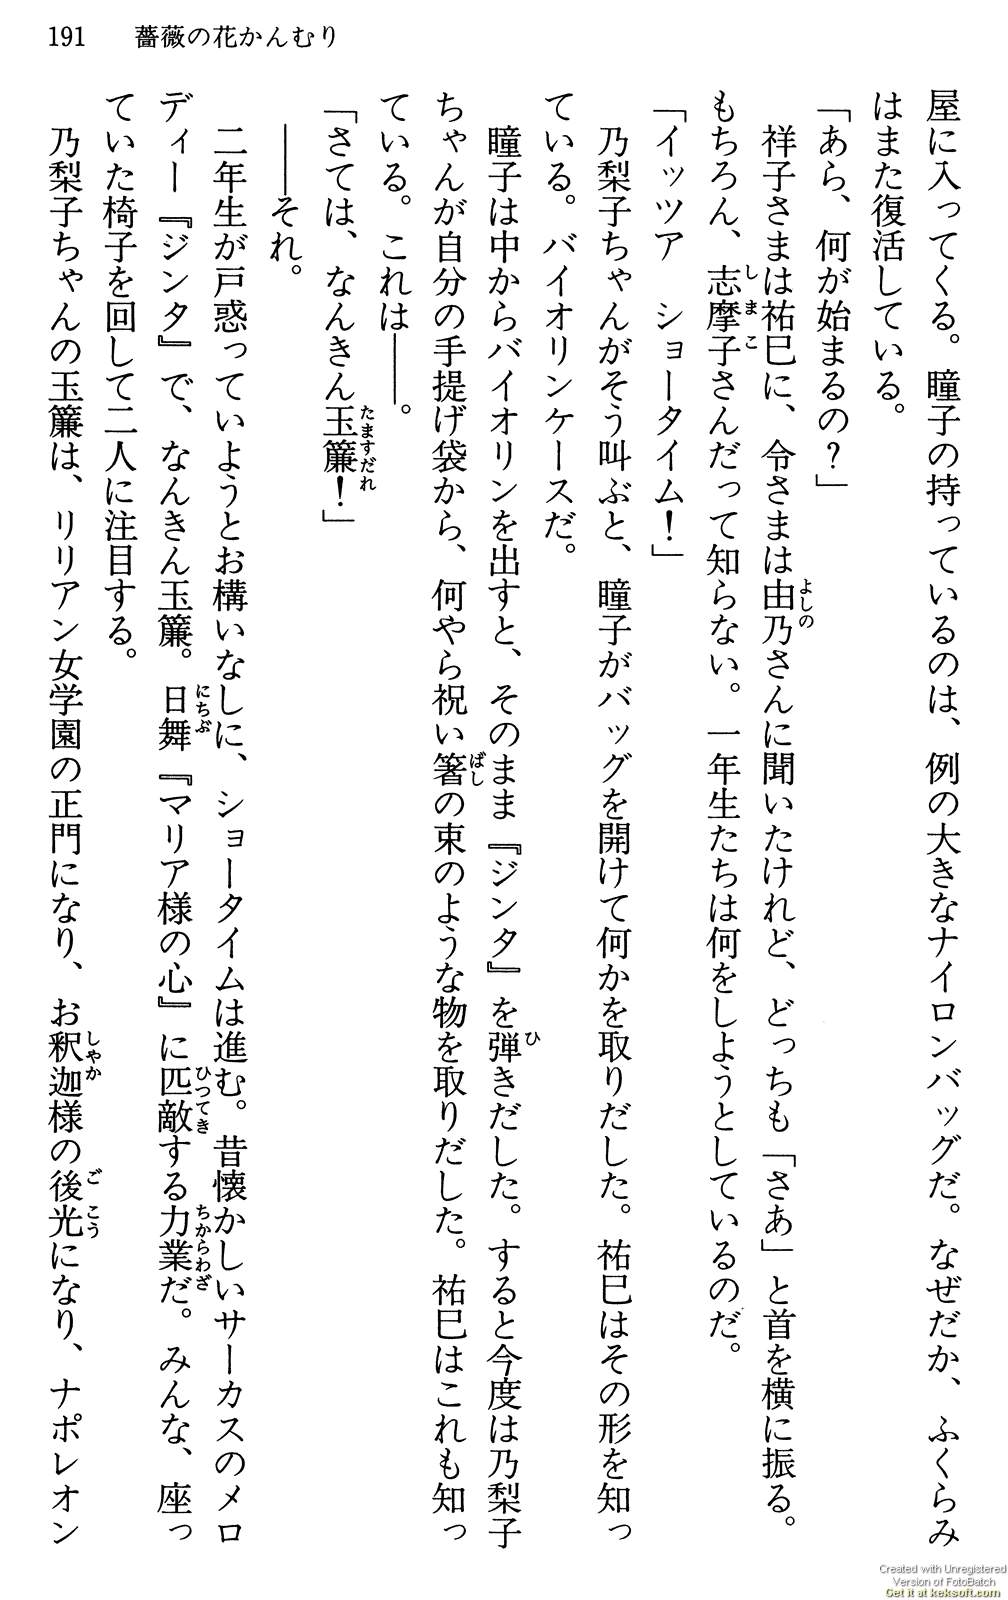 191　薔薇の花かんむり
屋に入ってくる。瞳子の持っているのは、例の大きなナイロンバッグだ。なぜだか、ふくらみ
はまた復活している。
「あら、何が始まるの？」
祥子さまは祐巳に、令さまは由乃さんに聞いたけれど、どっちも「さあ」と首を横に振る。
もちろん、志摩子さんだって知らない。一年生たちは何をしようとしているのだ。
「イッツア　ショータイム！」
乃梨子ちゃんがそう叫ぶと、瞳子がバッグを開けて何かを取りだした。祐巳はその形を知っ
ている。バイオリンケースだ。
瞳子は中からバイオリンを出すと、そのまま『ジンタ』を弾きだした。すると今度は乃梨子
ちゃんが自分の手提げ袋から、何やら祝い箸の束のような物を取りだした。祐巳はこれも知っ
ている。これは――。
「さては、なんきん玉簾！」
――それ。
二年生が戸惑っていようとお構いなしに、ショータイムは進む。昔懐かしいサーカスのメロ
ディー『ジンタ』で、なんきん玉簾。日舞『マリア様の心』に匹敵する力業だ。みんな、座っ
ていた椅子を回して二人に注目する。
乃梨子ちゃんの玉簾は、リリアン女学園の正門になり、お釈迦様の後光になり、ナポレオン
Created with Unregistered
Version of FotoBatch
Get it at keksoft.com